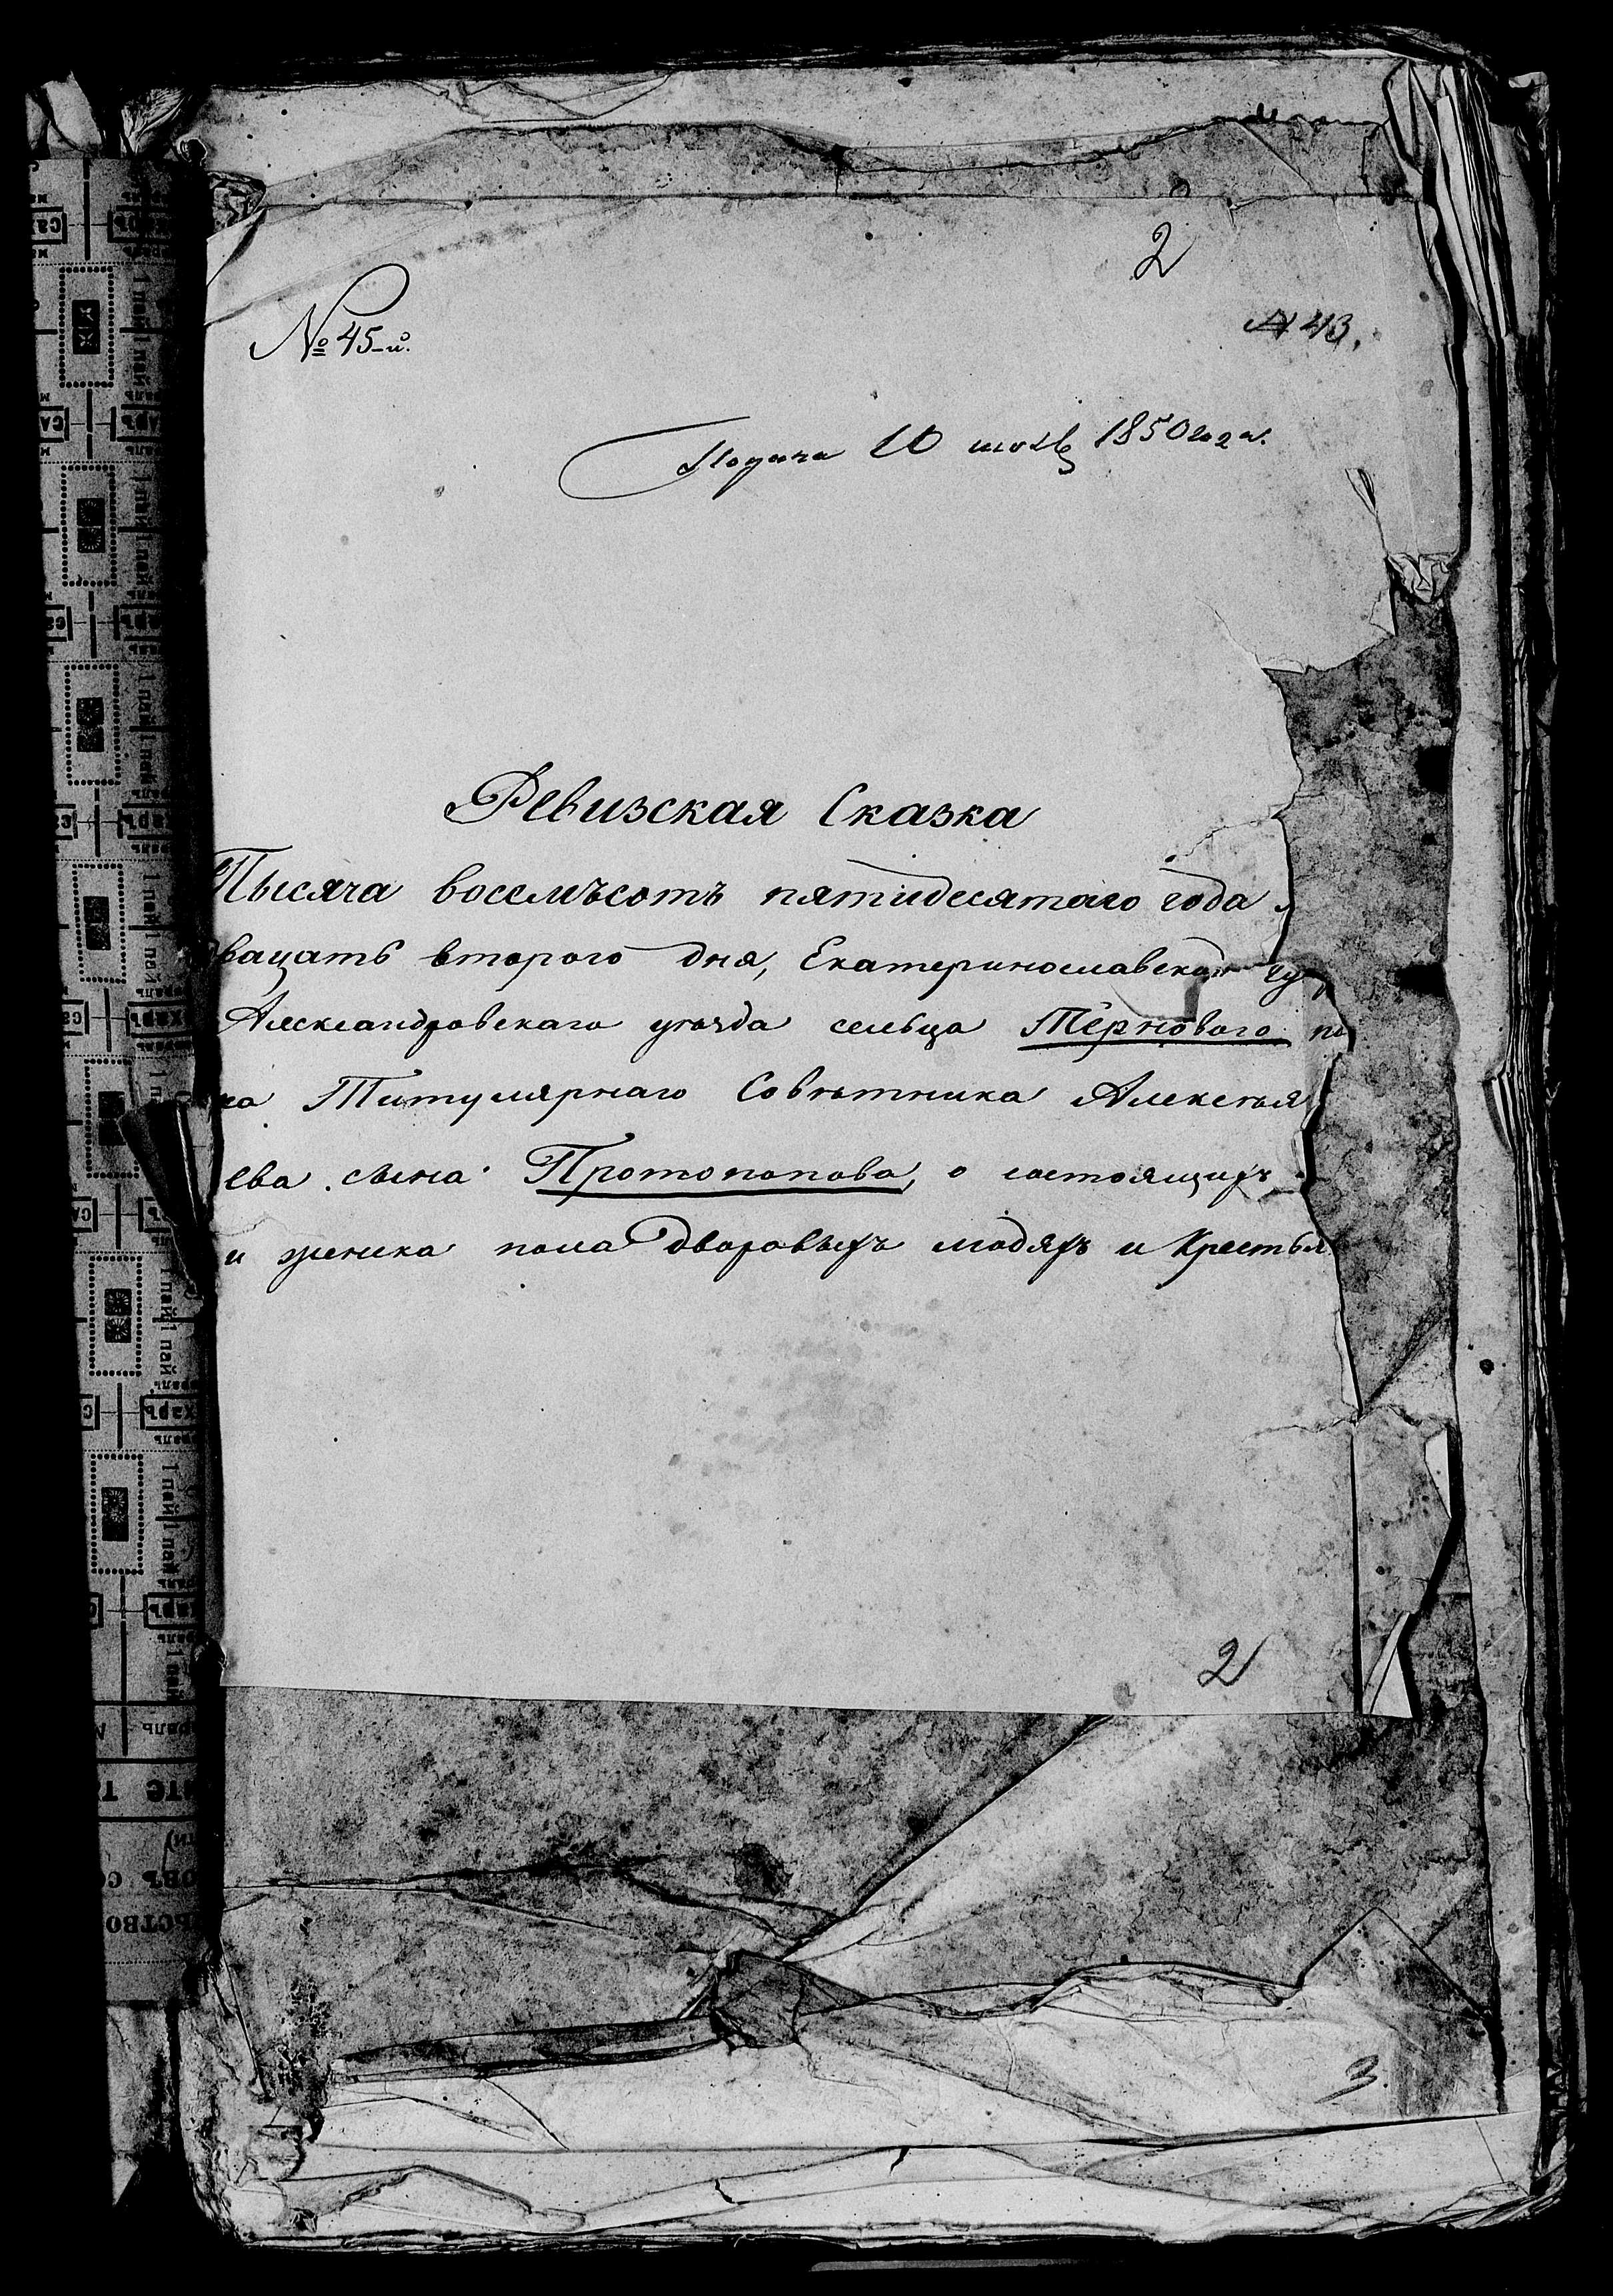 2
№ 45-й.
№ 43.
Подана 10 июля 1850 года.
Ревизская Сказка
Тысяча восемьсотъ пятидесятаго года
вацать втораго дня, Екатеринославской гу
Александровскаго уѣзда сельца Терноваго по
ка Титулярнаго Совѣтника Алексѣя
ева сына Протопопова, о состоящихъ
и женска пола дворовыхъ людяхъ и Крестья
2
3.